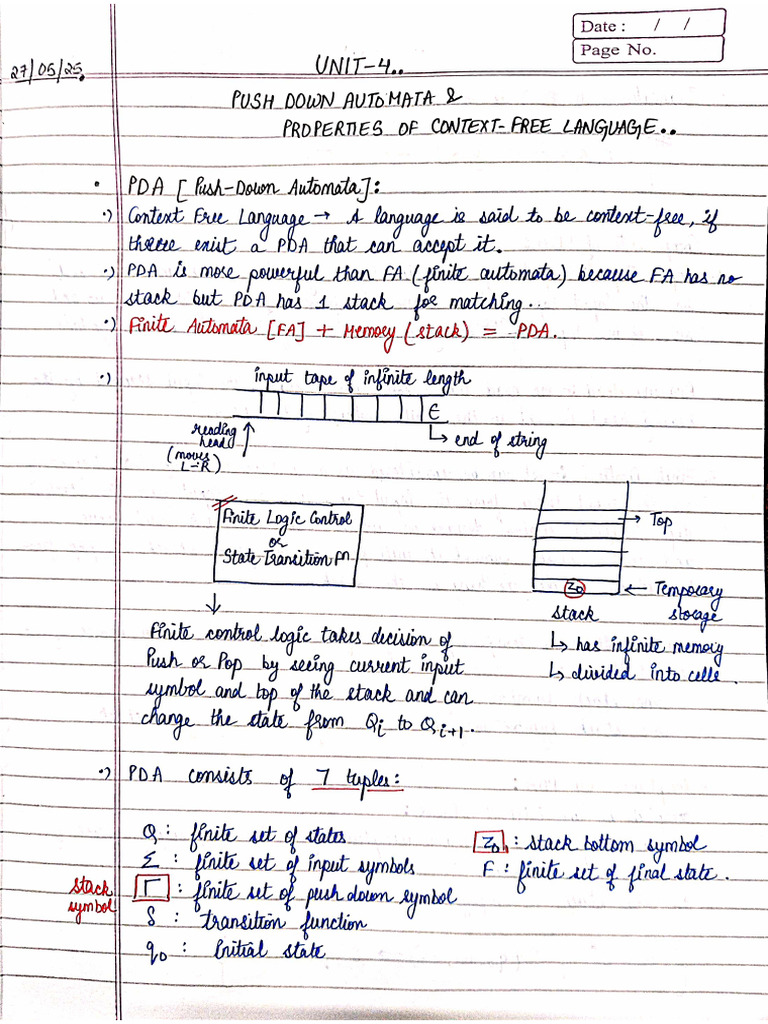 Date : / /
Page No.
27/05/25.
UNIT-4..
PUSH DOWN AUTOMATA &
PROPERTIES OF CONTEXT-FREE LANGUAGE..
• PDA [Push-Down Automata]:
•) Context Free Language → A language is said to be context-free, if
there exist a PDA that can accept it.
•) PDA is more powerful than FA (finite automata) because FA has no
stack but PDA has 1 stack for matching..
•) Finite Automata [FA] + Memory (stack) = PDA.
•) input tape of infinite length
ϵ
reading
head
(moves
L-R)
↳ end of string
Finite Logic Control
or
State Transition fn
→ Top
Z0
← Temporary
storage
stack
↳ has infinite memory
↳ divided into cells.
Finite control logic takes decision of
Push or Pop by seeing current input
symbol and top of the stack and can
change the state from Qi to Qi+1.
•) PDA consists of 7 tuples:
Q : finite set of states
Σ : finite set of input symbols
stack
symbol
Γ : finite set of push down symbol
δ : transition function
q0 : Initial state
Z0 : stack bottom symbol
F : finite set of final state.